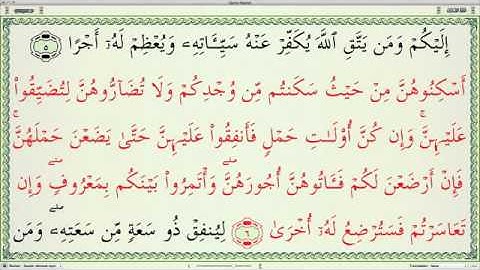 إِلَيْكُمْ وَمَن يَتَّقِ ٱللَّهَ يُكَفِّرْ عَنْهُ سَيِّـَٔاتِهِۦ وَيُعْظِمْ لَهُۥٓ أَجْرًا ٥
أَسْكِنُوهُنَّ مِنْ حَيْثُ سَكَنتُم مِّن وُجْدِكُمْ وَلَا تُضَآرُّوهُنَّ لِتُضَيِّقُوا۟
عَلَيْهِنَّ ۚ وَإِن كُنَّ أُو۟لَـٰتِ حَمْلٍ فَأَنفِقُوا۟ عَلَيْهِنَّ حَتَّىٰ يَضَعْنَ حَمْلَهُنَّ ۚ
فَإِنْ أَرْضَعْنَ لَكُمْ فَـَٔاتُوهُنَّ أُجُورَهُنَّ ۖ وَأْتَمِرُوا۟ بَيْنَكُم بِمَعْرُوفٍ ۖ وَإِن
تَعَاسَرْتُمْ فَسَتُرْضِعُ لَهُۥٓ أُخْرَىٰ ٦ لِيُنفِقْ ذُو سَعَةٍ مِّن سَعَتِهِۦ ۖ وَمَن